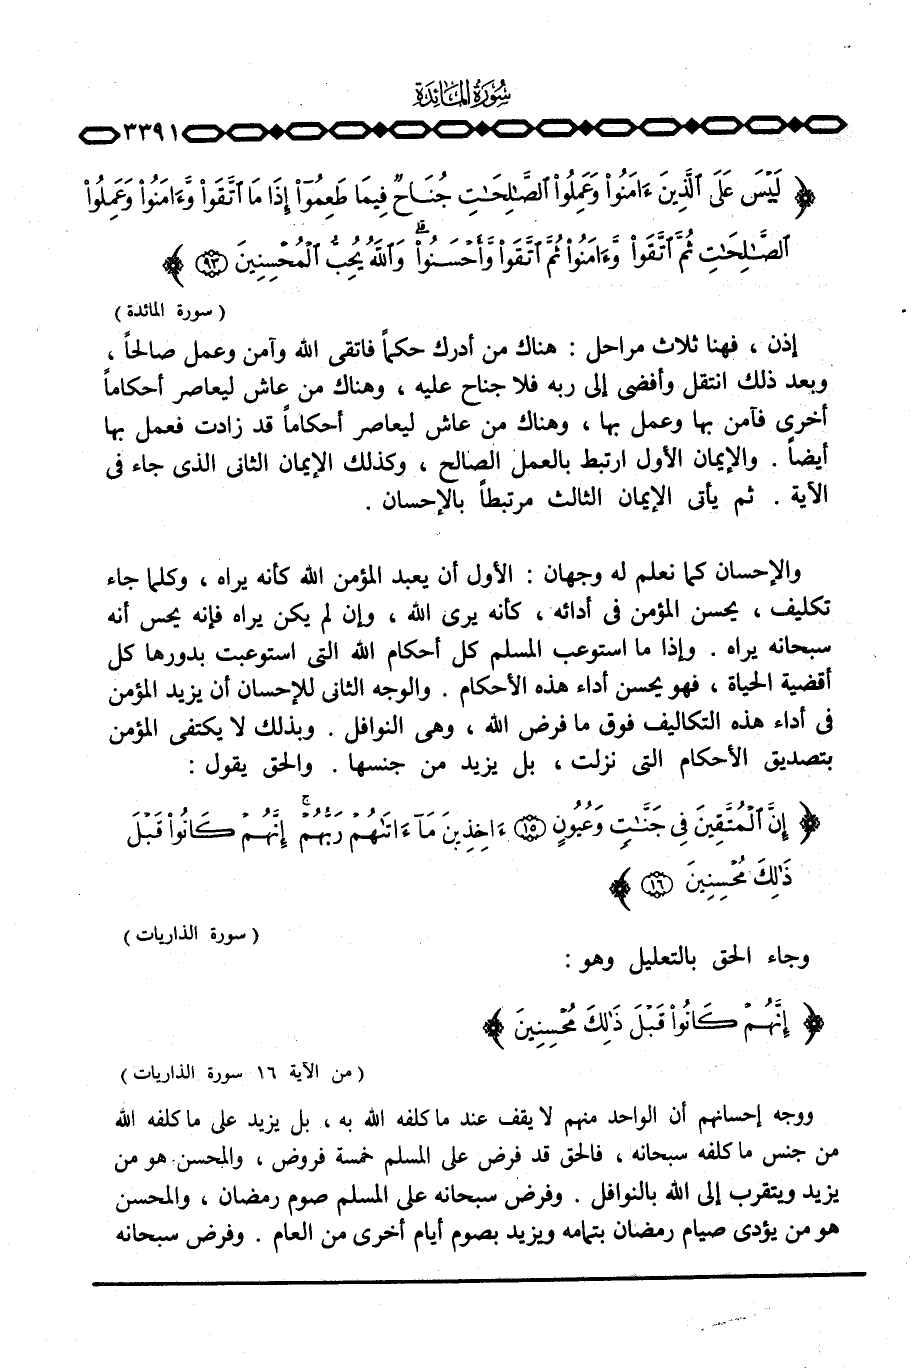 سُورَةُ المَائِدَةِ
٣٣٩١
﴿ لَيْسَ عَلَى ٱلَّذِينَ ءَامَنُوا۟ وَعَمِلُوا۟ ٱلصَّٰلِحَٰتِ جُنَاحٌ فِيمَا طَعِمُوٓا۟ إِذَا مَا ٱتَّقَوا۟ وَّءَامَنُوا۟ وَعَمِلُوا۟
ٱلصَّٰلِحَٰتِ ثُمَّ ٱتَّقَوا۟ وَّءَامَنُوا۟ ثُمَّ ٱتَّقَوا۟ وَّأَحْسَنُوا۟ ۗ وَٱللَّهُ يُحِبُّ ٱلْمُحْسِنِينَ ٩٣ ﴾
( سورة المائدة )
إذن ، فهنا ثلاث مراحل : هناك من أدرك حكماً فاتقى الله وآمن وعمل صالحاً ،
وبعد ذلك انتقل وأفضى إلى ربه فلا جناح عليه ، وهناك من عاش ليعاصر أحكاماً
أخرى فآمن بها وعمل بها ، وهناك من عاش ليعاصر أحكاماً قد زادت فعمل بها
أيضاً . والإيمان الأول ارتبط بالعمل الصالح ، وكذلك الإيمان الثانى الذى جاء فى
الآية . ثم يأتى الإيمان الثالث مرتبطاً بالإحسان .
والإحسان كما نعلم له وجهان : الأول أن يعبد المؤمن الله كأنه يراه ، وكلما جاء
تكليف ، يحسن المؤمن فى أدائه ، كأنه يرى الله ، وإن لم يكن يراه فإنه يحس أنه
سبحانه يراه . وإذا ما استوعب المسلم كل أحكام الله التى استوعبت بدورها كل
أقضية الحياة ، فهو يحسن أداء هذه الأحكام . والوجه الثانى للإحسان أن يزيد المؤمن
فى أداء هذه التكاليف فوق ما فرض الله ، وهى النوافل . وبذلك لا يكتفى المؤمن
بتصديق الأحكام التى نزلت ، بل يزيد من جنسها . والحق يقول :
﴿ إِنَّ ٱلْمُتَّقِينَ فِى جَنَّٰتٍ وَعُيُونٍ ١٥ ءَاخِذِينَ مَآ ءَاتَىٰهُمْ رَبُّهُمْ ۚ إِنَّهُمْ كَانُوا۟ قَبْلَ
ذَٰلِكَ مُحْسِنِينَ ١٦ ﴾
( سورة الذاريات )
وجاء الحق بالتعليل وهو :
﴿ إِنَّهُمْ كَانُوا۟ قَبْلَ ذَٰلِكَ مُحْسِنِينَ ﴾
( من الآية ١٦ سورة الذاريات )
ووجه إحسانهم أن الواحد منهم لا يقف عند ما كلفه الله به ، بل يزيد على ما كلفه الله
من جنس ما كلفه سبحانه ، فالحق قد فرض على المسلم خمسة فروض ، والمحسن هو من
يزيد ويتقرب إلى الله بالنوافل . وفرض سبحانه على المسلم صوم رمضان ، والمحسن
هو من يؤدى صيام رمضان بتمامه ويزيد بصوم أيام أخرى من العام . وفرض سبحانه